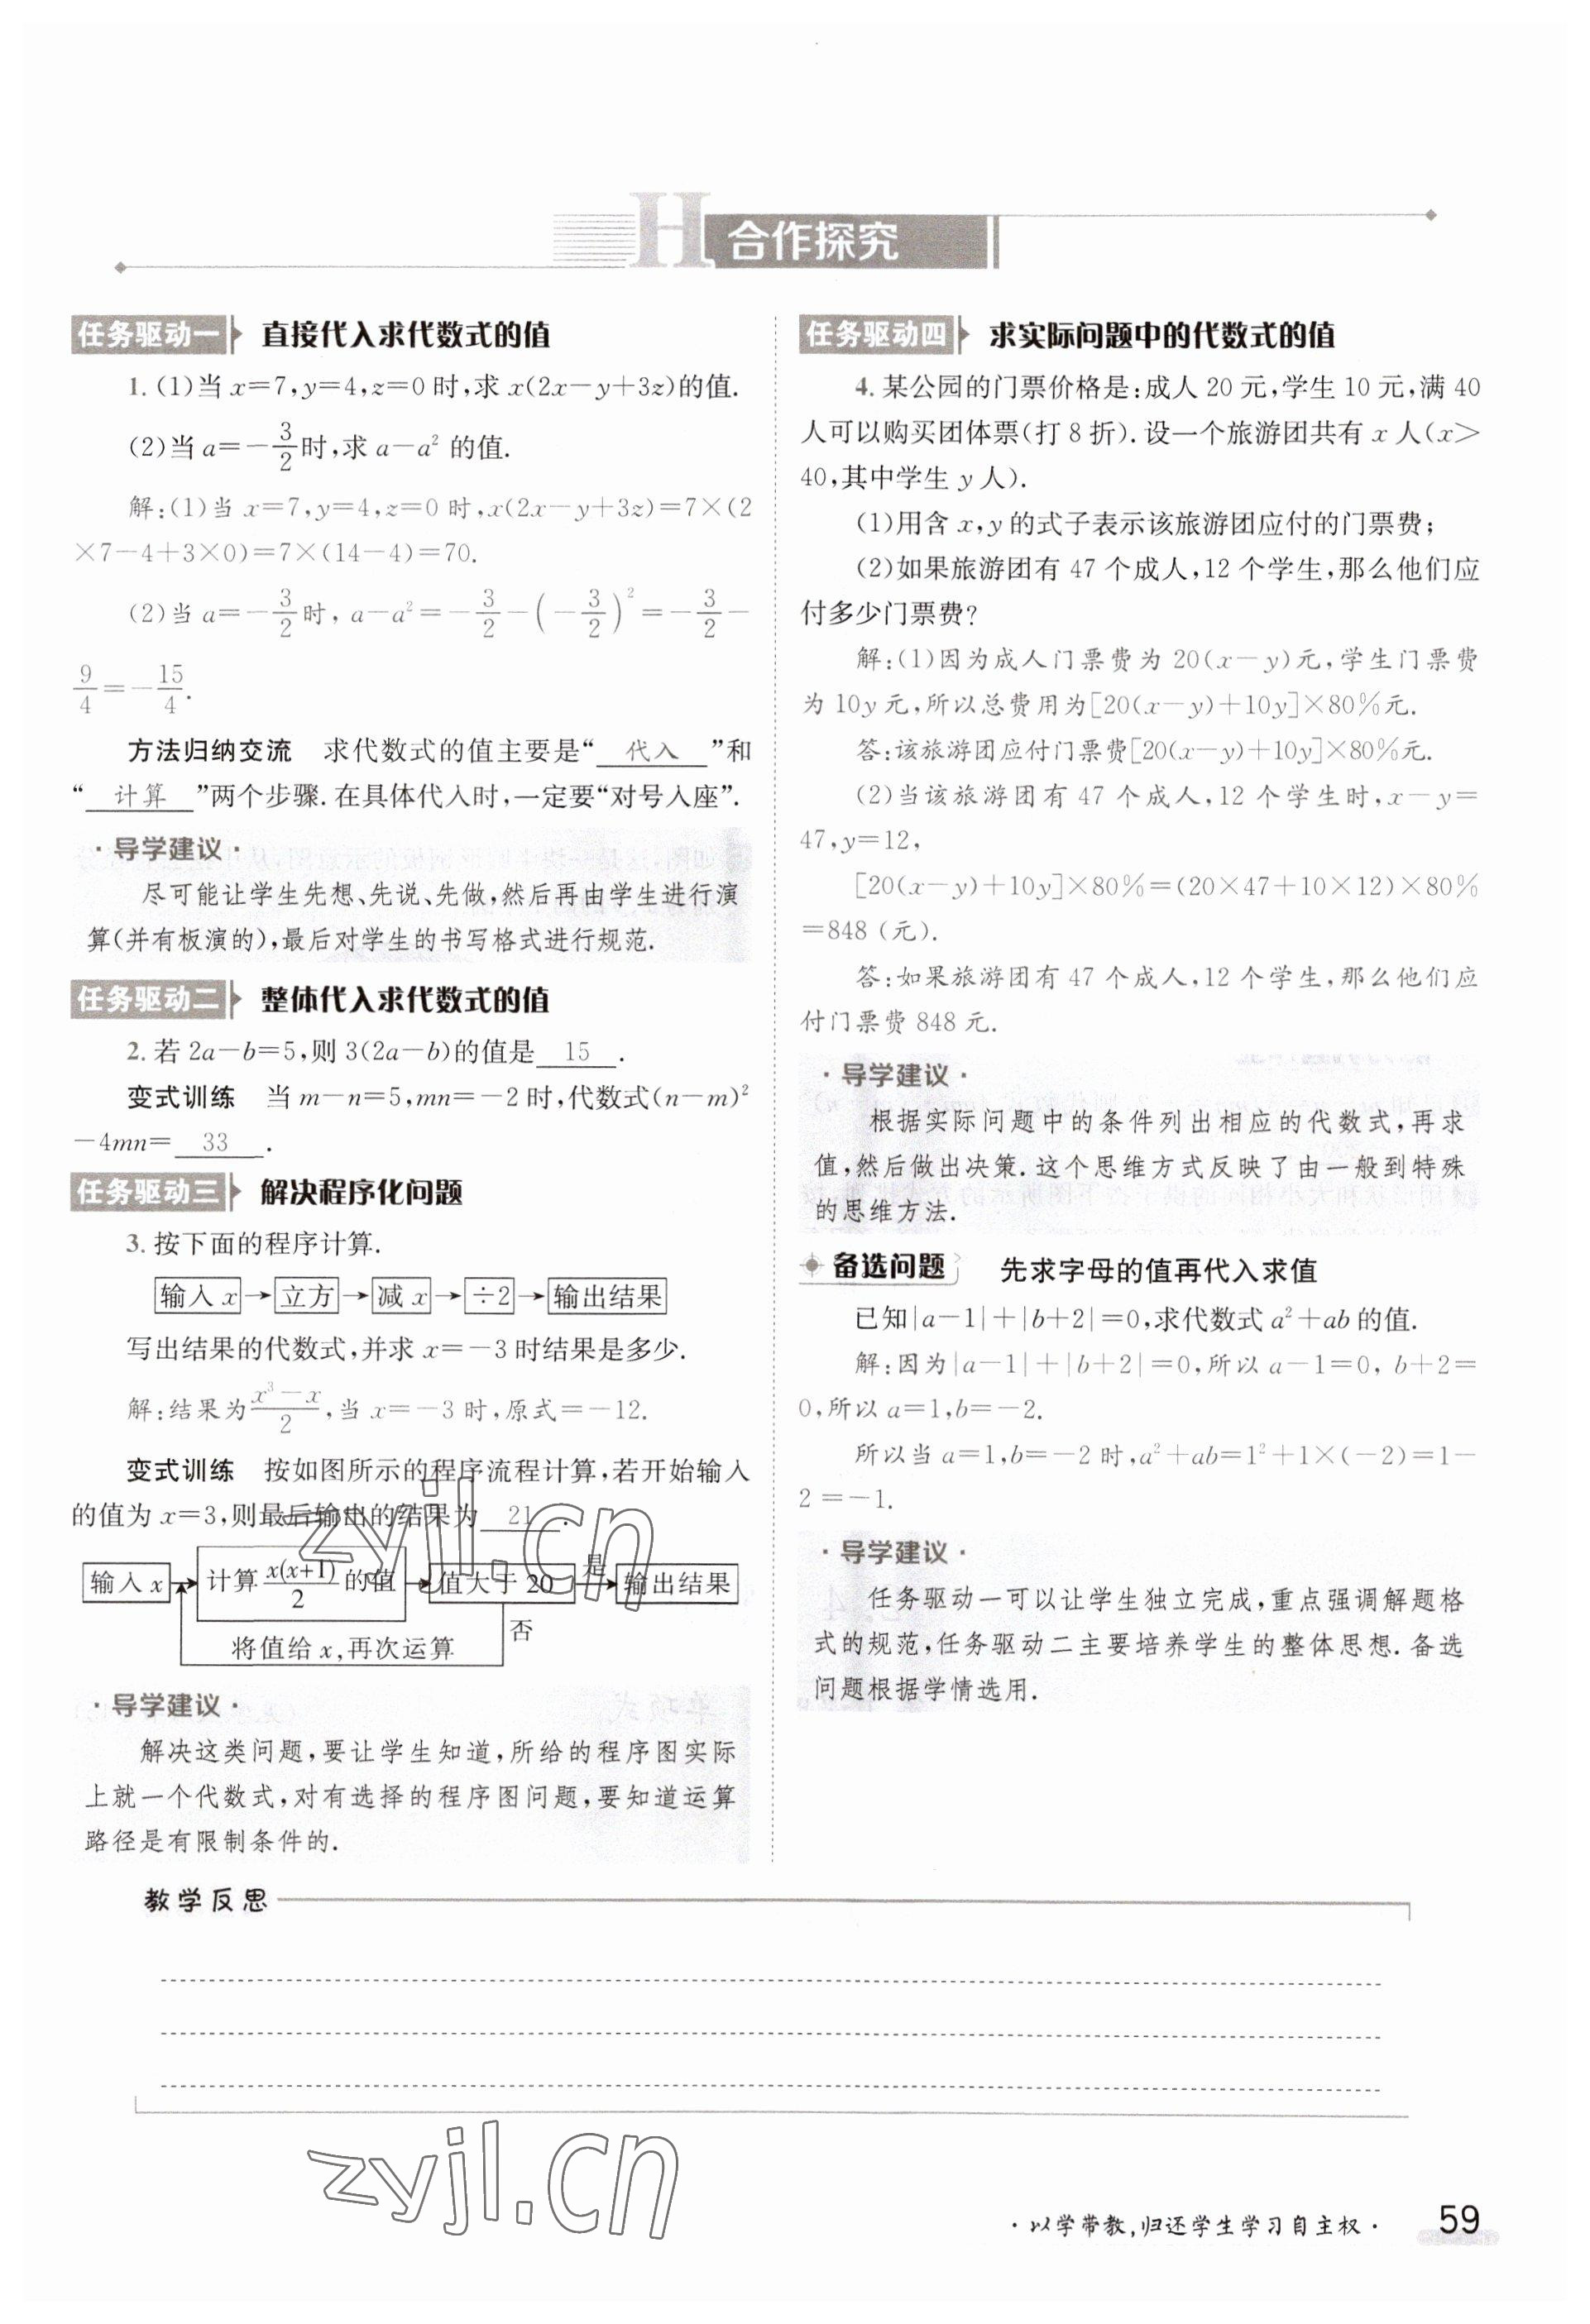 H 合作探究
任务驱动一 直接代入求代数式的值
1. (1)当 x=7,y=4,z=0 时,求 x(2x-y+3z)的值.
(2)当 a=-3/2时,求 a-a² 的值.
解:(1)当 x=7,y=4,z=0 时,x(2x-y+3z)=7×(2
×7-4+3×0)=7×(14-4)=70.
(2)当 a=-3/2时, a-a²=-3/2-(-3/2)²=-3/2-
9/4=-15/4.
方法归纳交流 求代数式的值主要是“ 代入 ”和
“ 计算 ”两个步骤.在具体代入时,一定要“对号入座”.
·导学建议·
尽可能让学生先想、先说、先做,然后再由学生进行演
算(并有板演的),最后对学生的书写格式进行规范.
任务驱动二 整体代入求代数式的值
2. 若 2a-b=5,则 3(2a-b)的值是 15 .
变式训练 当 m-n=5,mn=-2 时,代数式(n-m)²
-4mn= 33 .
任务驱动三 解决程序化问题
3. 按下面的程序计算.
输入 x→立方→减 x→÷2→输出结果
写出结果的代数式,并求 x=-3 时结果是多少.
解:结果为(x³-x)/2,当 x=-3 时,原式=-12.
变式训练 按如图所示的程序流程计算,若开始输入
的值为 x=3,则最后输出的结果为 21 .
输入 x 计算 x(x+1)/2 的值 值大于 20 是 输出结果
否
将值给 x,再次运算
·导学建议·
解决这类问题,要让学生知道,所给的程序图实际
上就一个代数式,对有选择的程序图问题,要知道运算
路径是有限制条件的.
任务驱动四 求实际问题中的代数式的值
4. 某公园的门票价格是:成人 20 元,学生 10 元,满 40
人可以购买团体票(打 8 折).设一个旅游团共有 x 人(x>
40,其中学生 y 人).
(1)用含 x,y 的式子表示该旅游团应付的门票费;
(2)如果旅游团有 47 个成人,12 个学生,那么他们应
付多少门票费?
解:(1)因为成人门票费为 20(x-y)元,学生门票费
为 10y 元,所以总费用为[20(x-y)+10y]×80%元.
答:该旅游团应付门票费[20(x-y)+10y]×80%元.
(2)当该旅游团有 47 个成人,12 个学生时,x-y=
47,y=12,
[20(x-y)+10y]×80%=(20×47+10×12)×80%
=848 (元).
答:如果旅游团有 47 个成人,12 个学生,那么他们应
付门票费 848 元.
·导学建议·
根据实际问题中的条件列出相应的代数式,再求
值,然后做出决策.这个思维方式反映了由一般到特殊
的思维方法.
备选问题 先求字母的值再代入求值
已知|a-1|+|b+2|=0,求代数式 a²+ab 的值.
解:因为|a-1|+|b+2|=0,所以 a-1=0, b+2=
0,所以 a=1,b=-2.
所以当 a=1,b=-2 时,a²+ab=1²+1×(-2)=1-
2 =-1.
·导学建议·
任务驱动一可以让学生独立完成,重点强调解题格
式的规范,任务驱动二主要培养学生的整体思想.备选
问题根据学情选用.
教学反思
zyjl.cn
zyjl.cn
·以学带教,归还学生学习自主权· 59